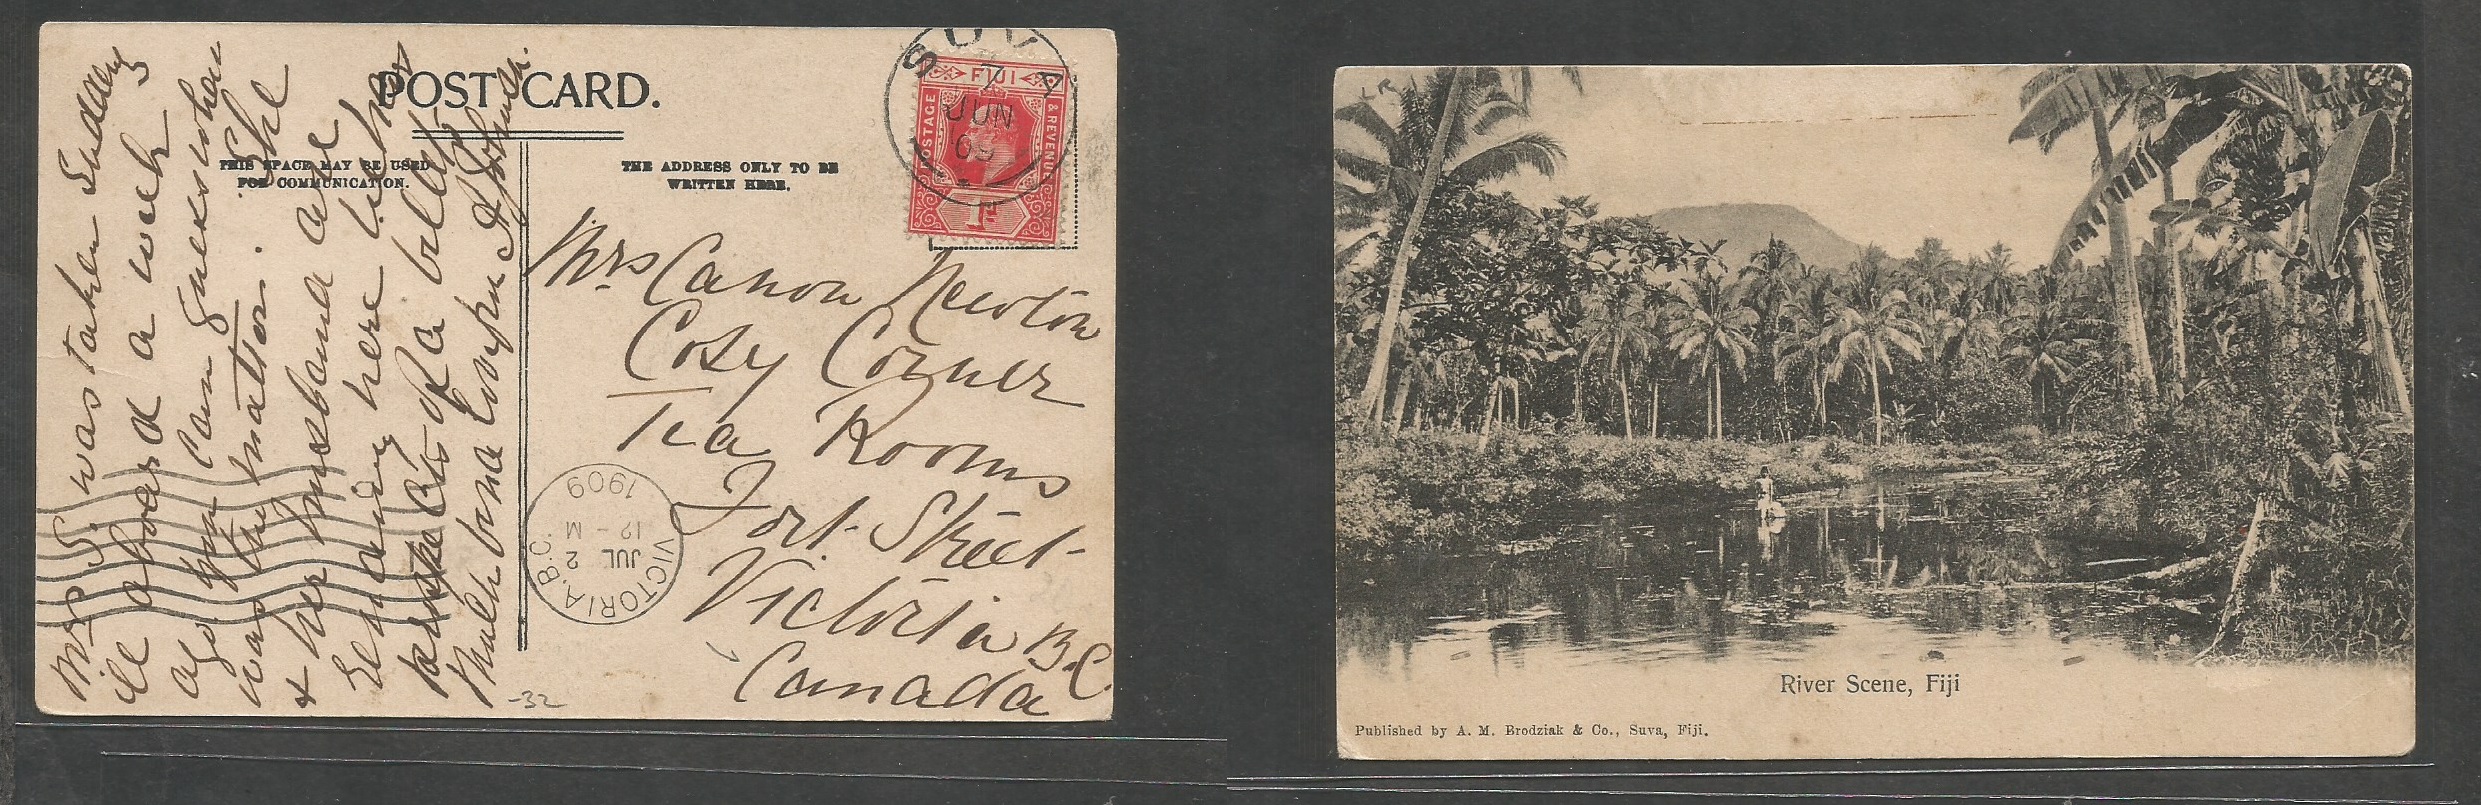 POST CARD.
THIS SPACE MAY BE USED
FOR COMMUNICATION.
THE ADDRESS ONLY TO BE
WRITTEN HERE.
SUVA
7
JUN
09
FIJI
POSTAGE
& REVENUE
1D
Mrs S. was taken suddenly
ill aboard a week
ago you can guess what
was the matter. She
& her husband are
leaving here
Much love
Mrs Canon Newton
Cosy Corner
Tea Rooms
Fort Street
Victoria B.C.
Canada
VICTORIA, B.C.
JUL 2
12 - M
1909
-32
LR
River Scene, Fiji
Published by A. M. Brodziak & Co., Suva, Fiji.